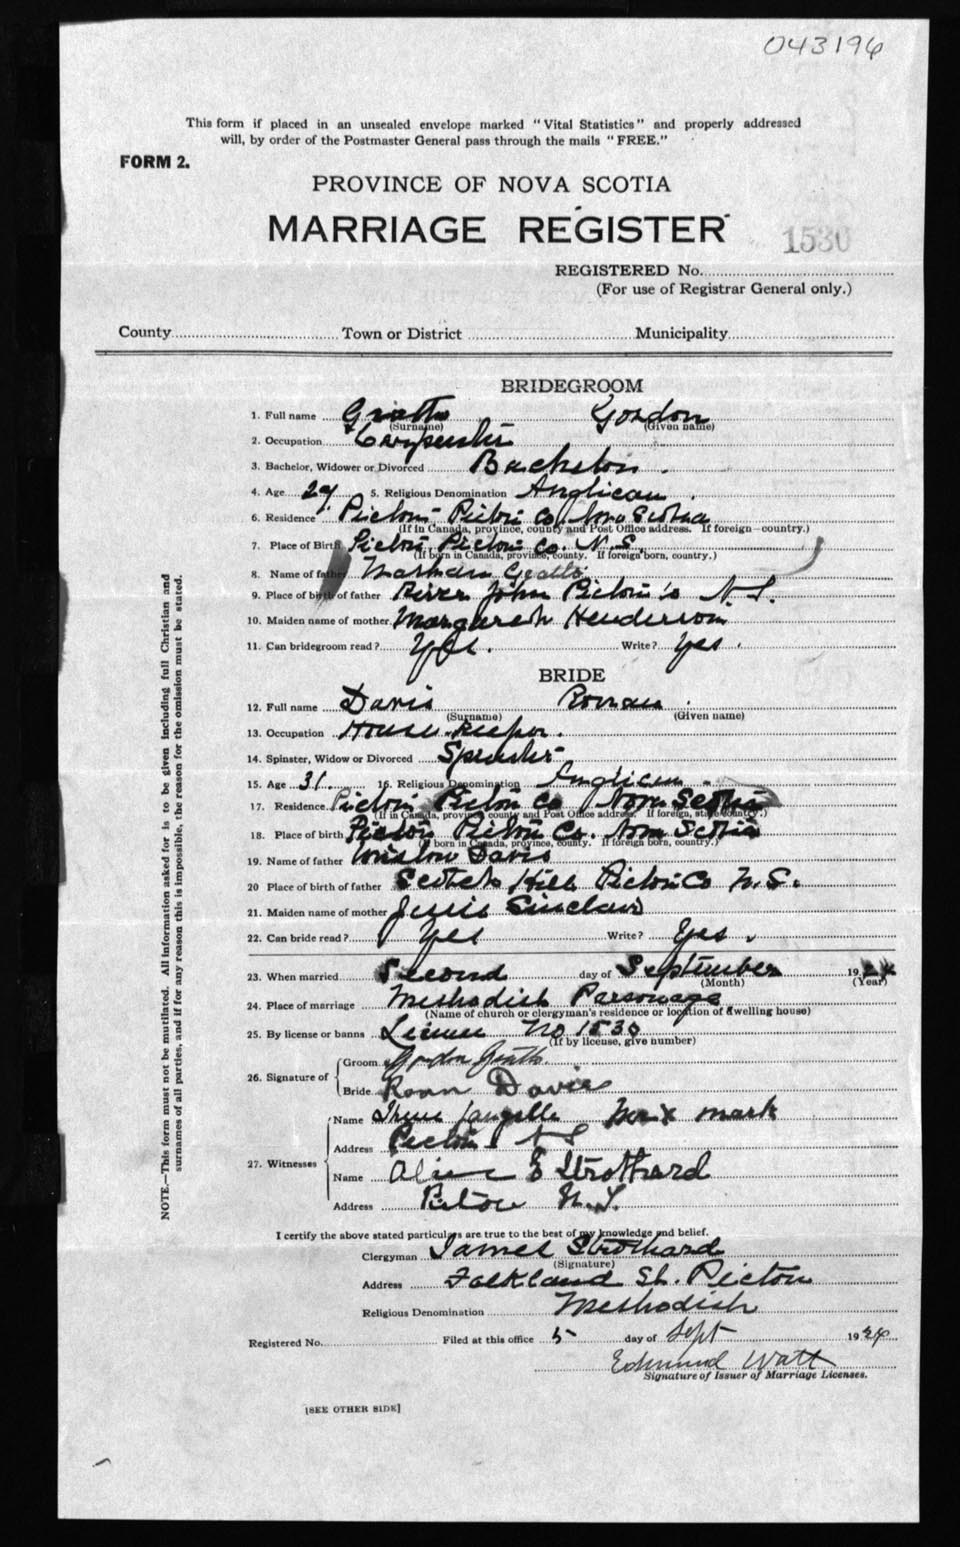 043196
This form if placed in an unsealed envelope marked "Vital Statistics" and properly addressed
will, by order of the Postmaster General pass through the mails "FREE."
FORM 2.
PROVINCE OF NOVA SCOTIA
MARRIAGE REGISTER
1530
REGISTERED No.
(For use of Registrar General only.)
County Town or District Municipality
BRIDEGROOM
1. Full name Gordon
(Surname) (Given name)
2. Occupation Carpenter
3. Bachelor, Widower or Divorced Bachelor.
4. Age 5. Religious Denomination Anglican.
6. Residence Pictou Pictou Co Nova Scotia
(If in Canada, province, county and Post Office address. If foreign country.)
7. Place of Birth Pictou, Pictou Co. N.S.
(If born in Canada, province, county. If foreign born, country.)
8. Name of father
9. Place of birth of father River John Pictou Co N.S.
10. Maiden name of mother Margaret Henderson
11. Can bridegroom read? Yes. Write? Yes.
BRIDE
12. Full name Davis
(Surname) (Given name)
13. Occupation House Keeper.
14. Spinster, Widow or Divorced Spinster
15. Age 31. 16. Religious Denomination Anglican.
17. Residence Pictou Pictou Co Nova Scotia
(If in Canada, province, county and Post Office address. If foreign, state country.)
18. Place of birth Pictou Pictou Co. Nova Scotia
(If born in Canada, province, county. If foreign born, country.)
19. Name of father Winslow Davis
20 Place of birth of father Scotch Hill Pictou Co N.S.
21. Maiden name of mother Jessie Sinclair
22. Can bride read? Yes Write? Yes.
23. When married Second day of September 1924
(Month) (Year)
24. Place of marriage Methodist Parsonage
(Name of church or clergyman's residence or location of dwelling house)
25. By license or banns License No 1530
(If by license, give number)
26. Signature of
Groom Gordon
Bride Davis
27. Witnesses
Name Irene Langille her x mark
Address Pictou N S
Name Alice E Strothard
Address Pictou N.S.
I certify the above stated particulars are true to the best of my knowledge and belief.
Clergyman James Strothard
(Signature)
Address Falkland St. Pictou
Religious Denomination Methodist
Registered No. Filed at this office 5 day of Sept 1924
Edmund Watt
Signature of Issuer of Marriage Licenses.
[SEE OTHER SIDE]
NOTE.—This form must not be mutilated. All information asked for is to be given including full Christian and
surnames of all parties, and if for any reason this is impossible, the reason for the omission must be stated.